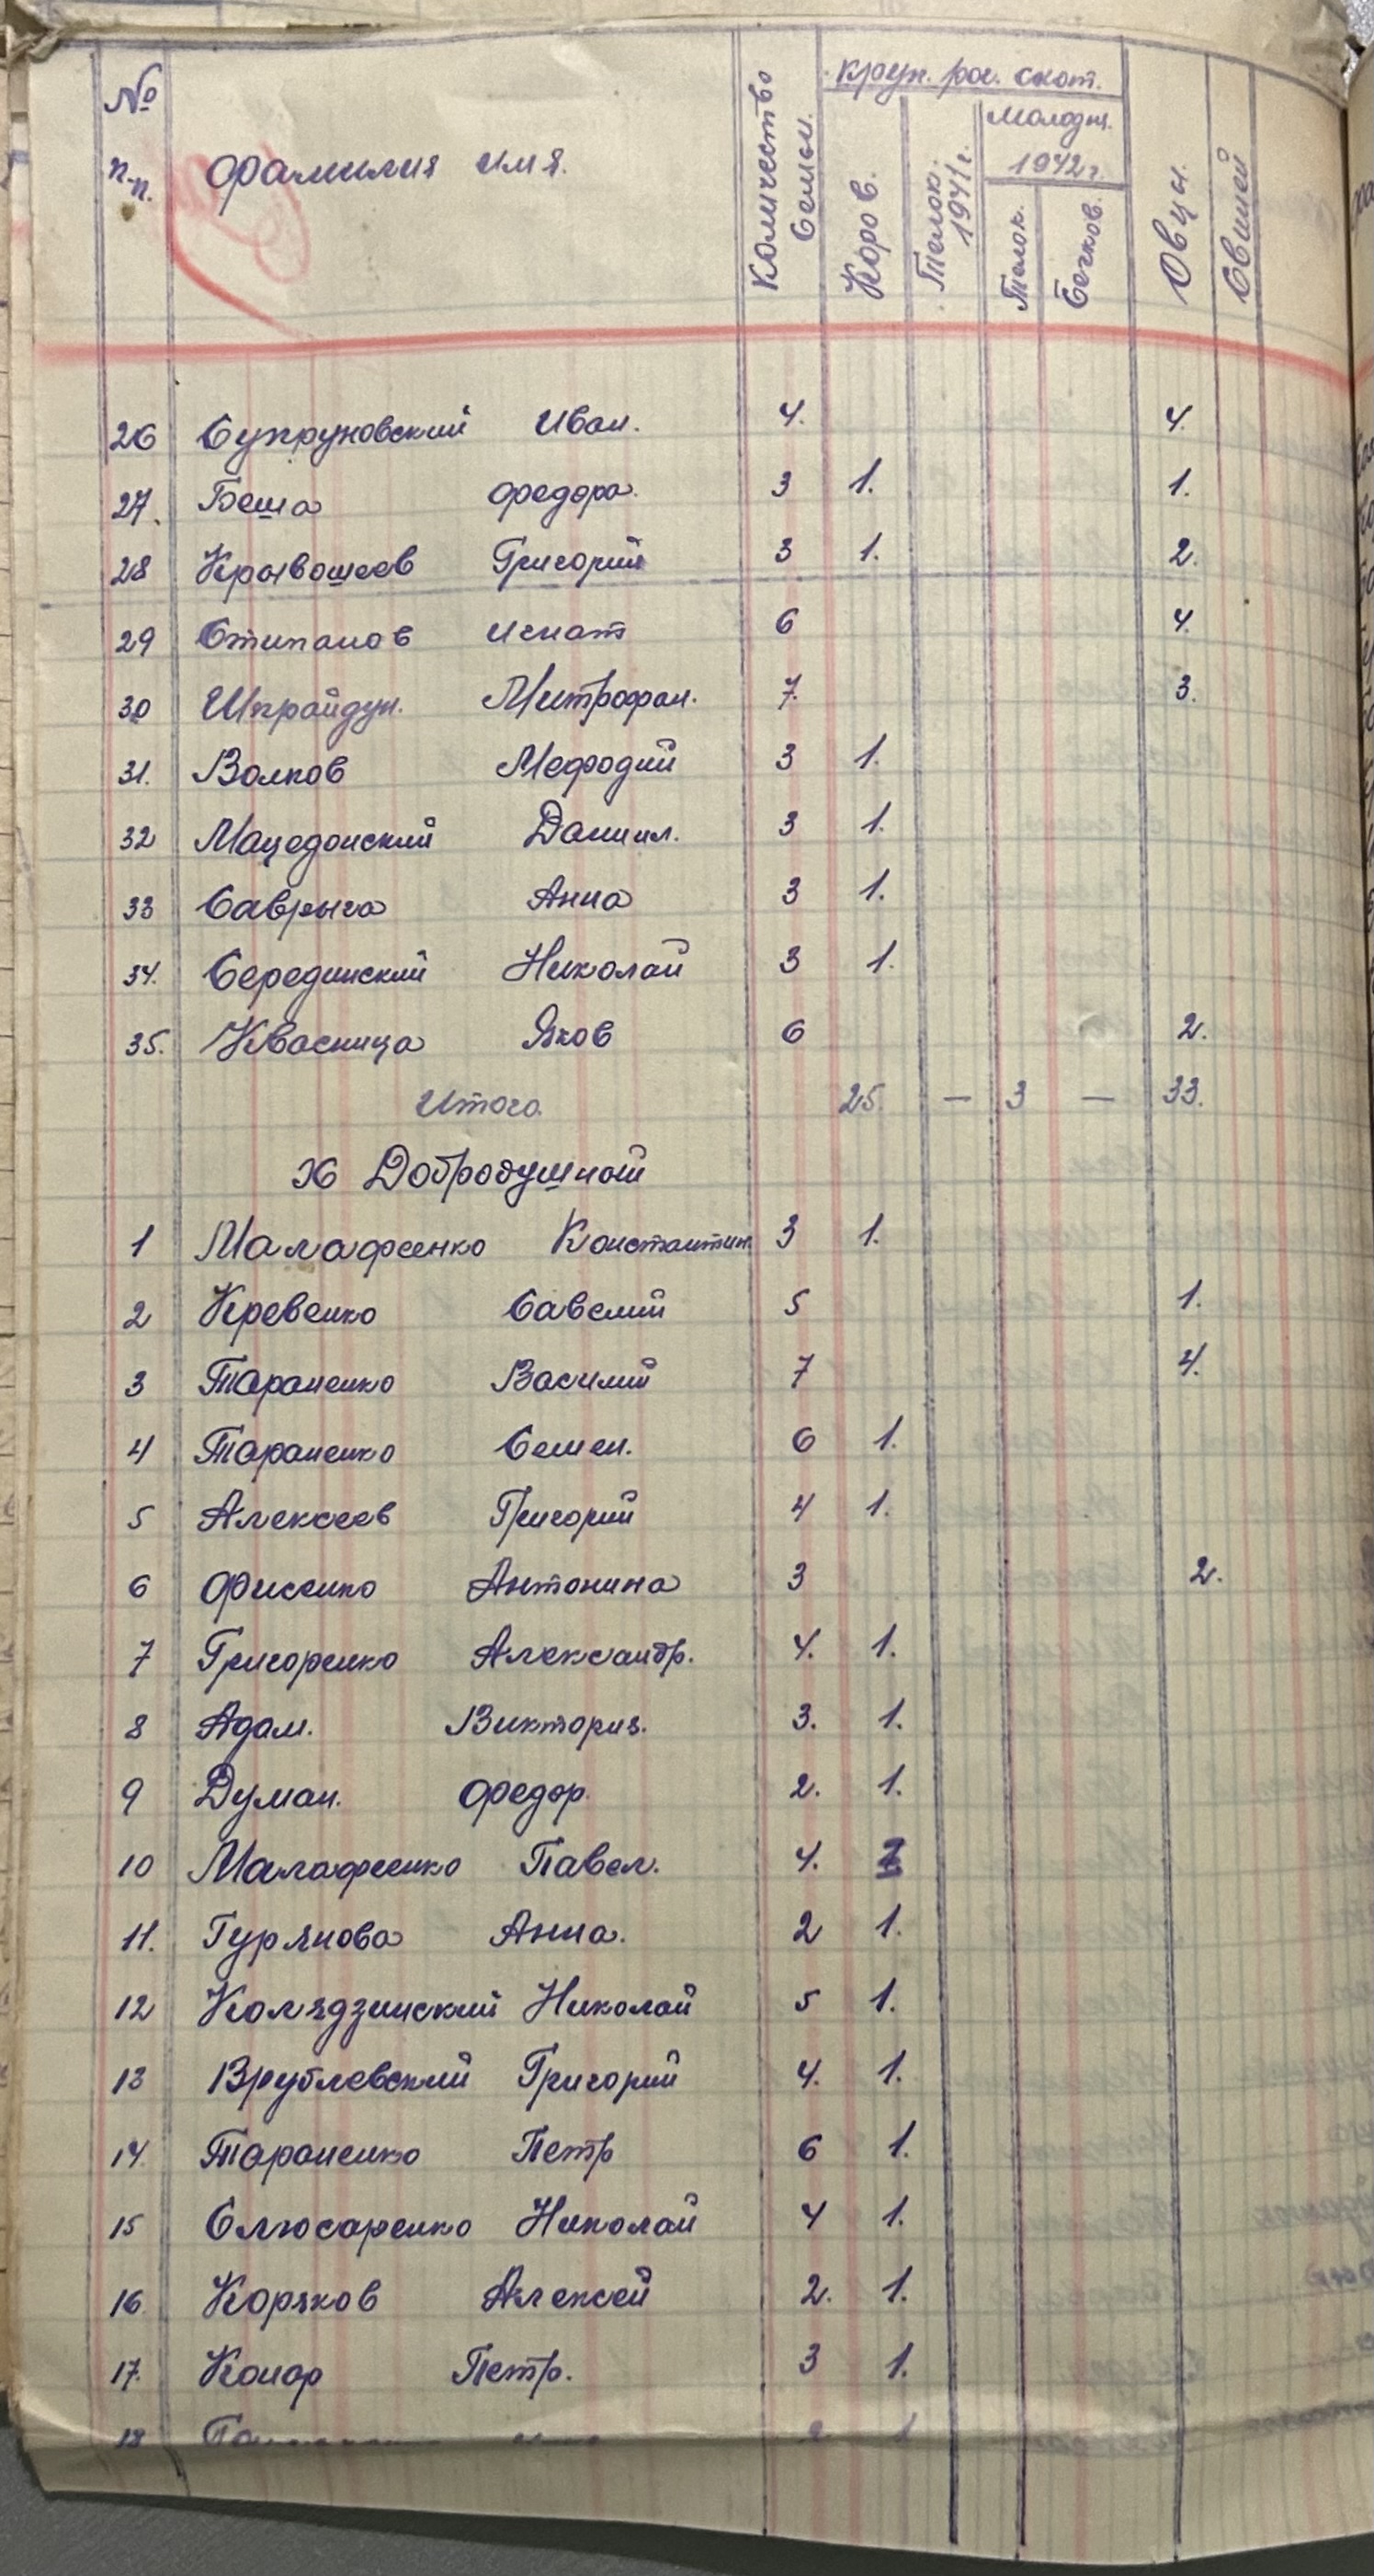 № п-п. Фамилия имя. Количество семьи. Круп. рог. скот. Коров. Телок. 1941 г. Молодн. 1942 г. Телок. Бычков. Овцы. Свиней
26 Супруновский Иван. 4. 4.
27. Беша Федора. 3 1. 1.
28 Крывошеев Григорий 3 1. 2.
29 Стипанов Игнат 6 4.
30 Шкрайдун. Митрофан. 7. 3.
31. Волков Мефодий 3 1.
32 Мацедонский Даниил. 3 1.
33 Саврыга Анна 3 1.
34. Серединский Николай 3 1.
35. Квасница Яков 6 2.
Итого. 25. — 3 — 33.
Х Добродушной
1 Малафеенко Константин. 3 1.
2 Кревенко Савелий 5 1.
3 Тараненко Василий 7 4.
4 Тараненко Семен. 6 1.
5 Алексеев Григорий 4 1.
6 Фисенко Антонина 3 2.
7 Григоренко Александр. 4. 1.
8 Адам. Виктория. 3. 1.
9 Думан. Федор. 2. 1.
10 Малафеенко Павел. 4.
11. Гурянова Анна. 2 1.
12 Колядзинский Николай 5 1.
13 Врублевский Григорий 4. 1.
14. Тараненко Петр 6 1.
15 Слюсаренко Николай 4 1.
16 Коряков Алексей 2. 1.
17. Конар Петр. 3 1.
18 2 1